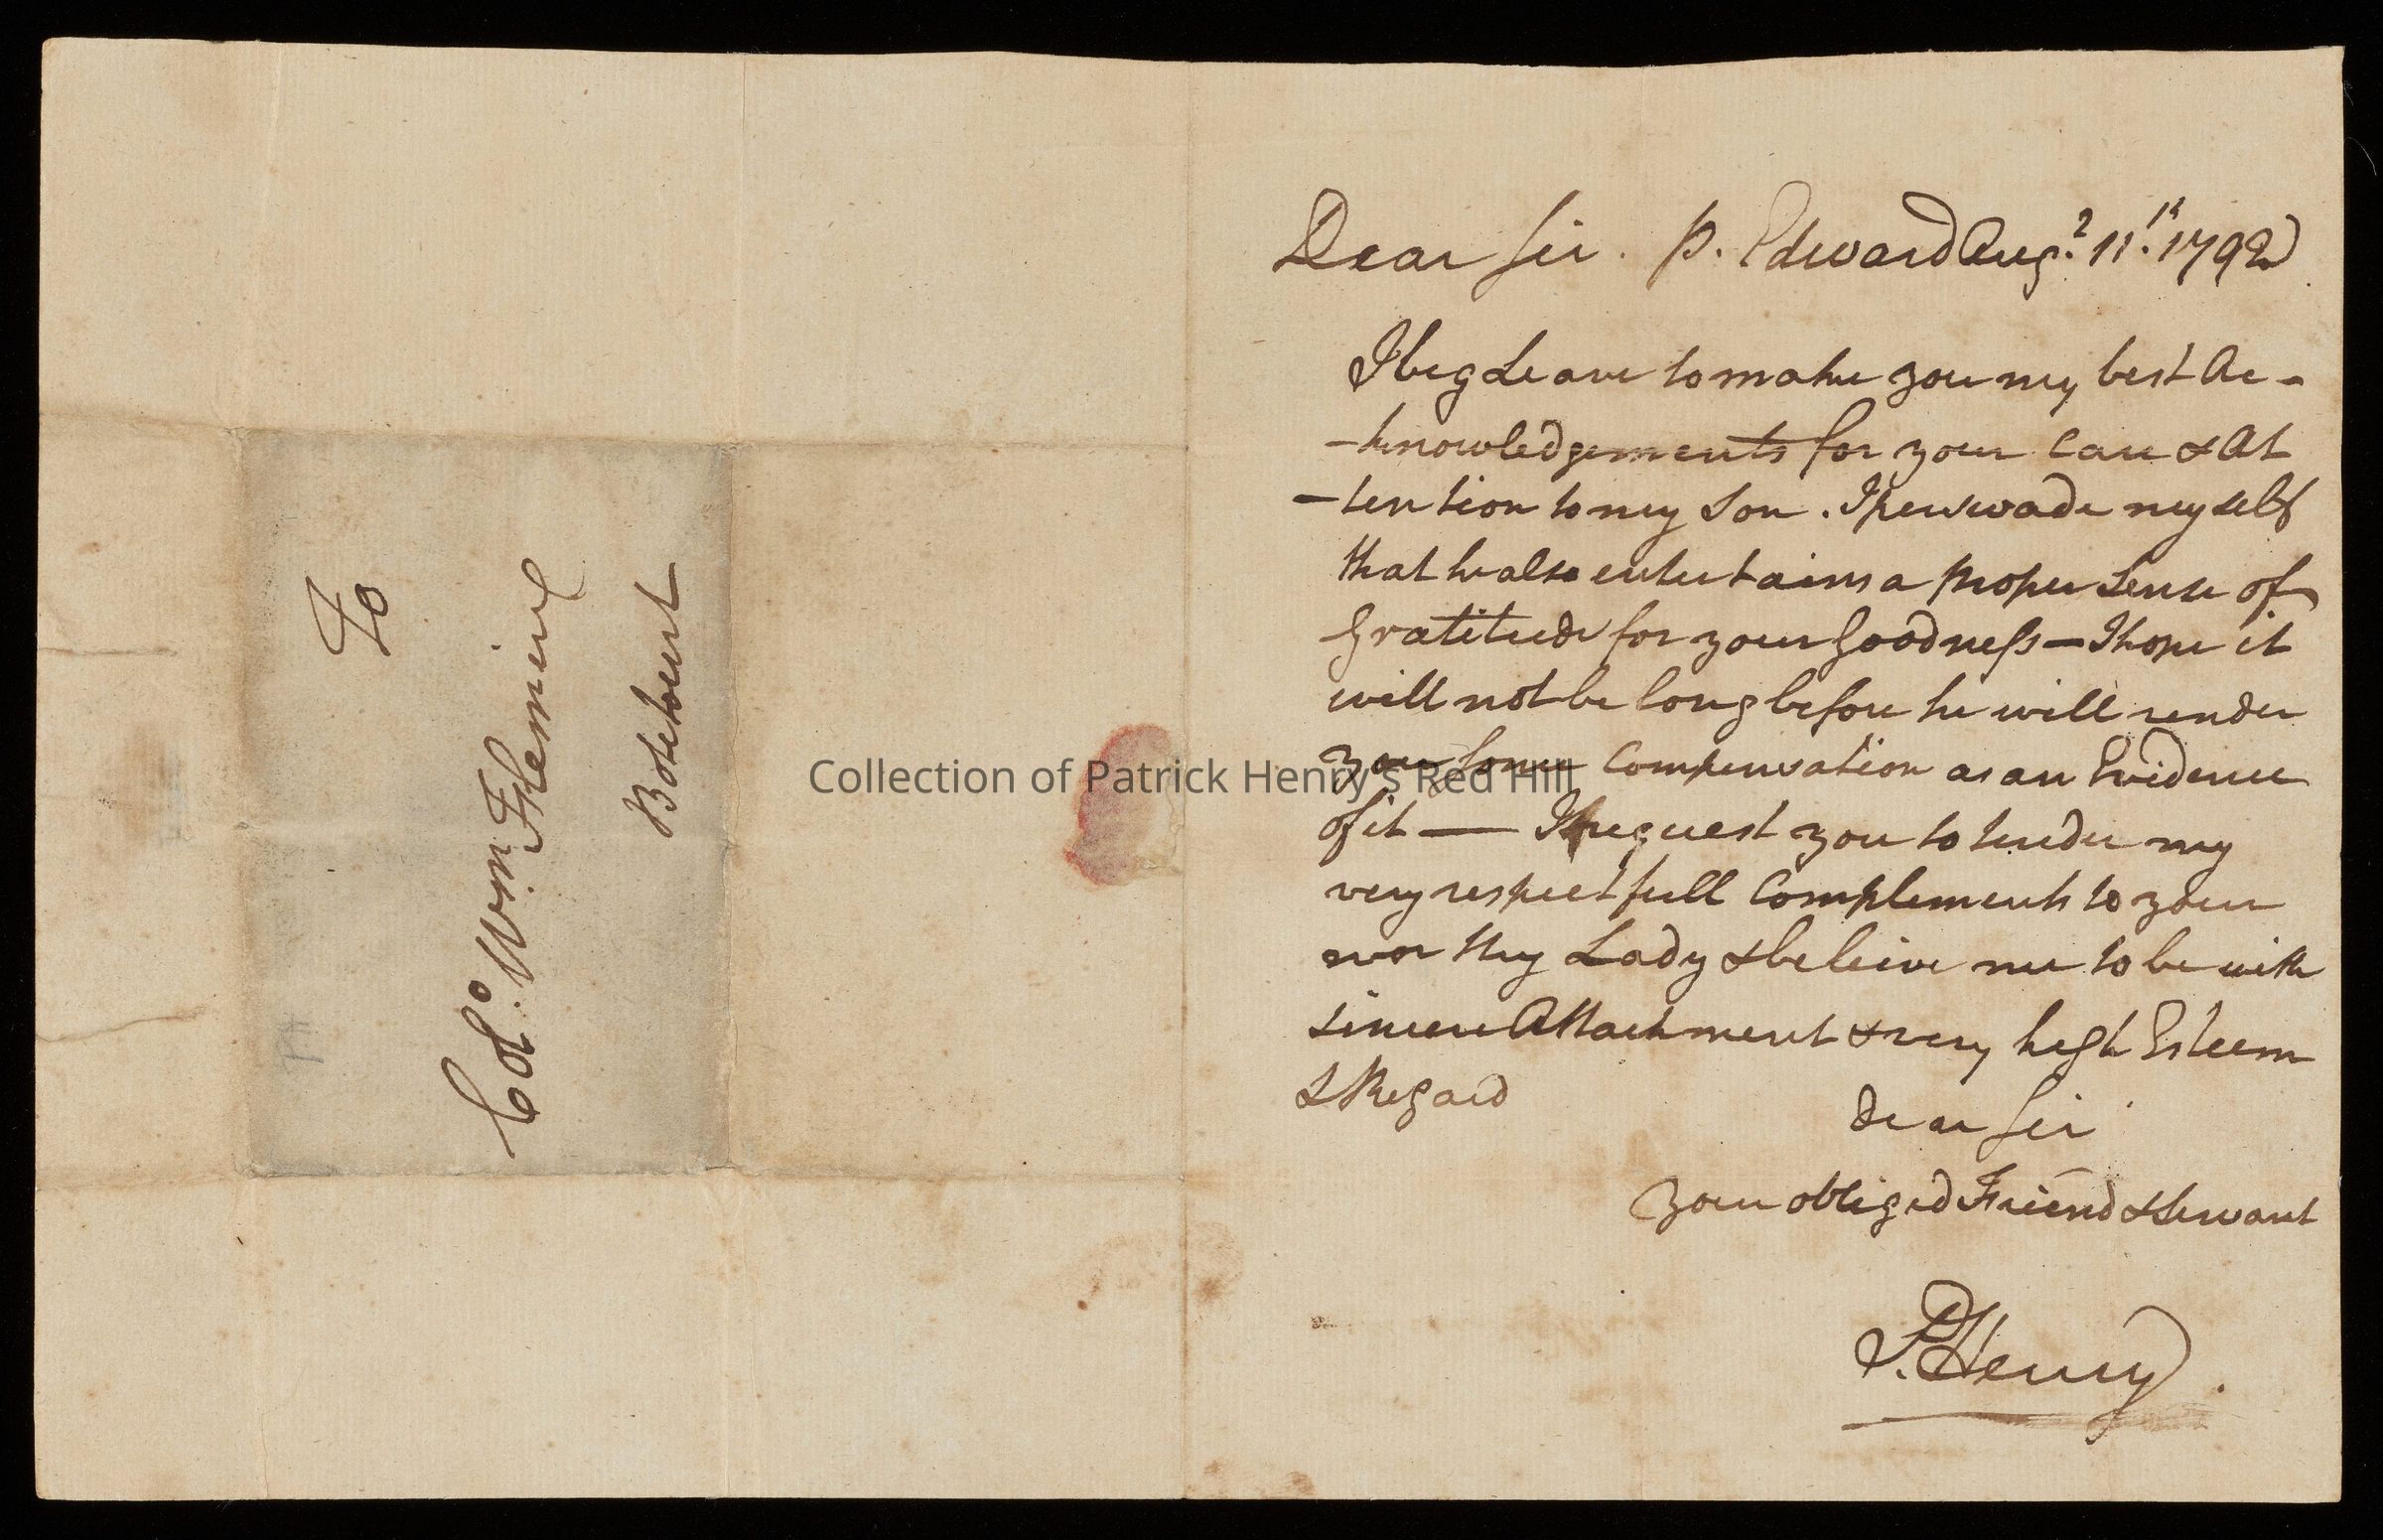 To
Colo. Wm. Fleming
Botetourt
Collection of Patrick Henry's Red Hill
Dear Sir. P. Edward Augt. 11th. 1792
I beg Leave to make you my best Ac-
-knowledgements for your Care & At
-tention to my Son. I perswade myself
that he also entertains a proper Sense of
Gratitude for your Goodness — I hope it
will not be long before he will render
you some Compensation as an Evidence
of it — I request you to tender my
very respectfull Complements to your
worthy Lady & beleive me to be with
sincere Attachment & very high Esteem
& Regard
Dear Sir
Your obliged Friend & Servant
P. Henry